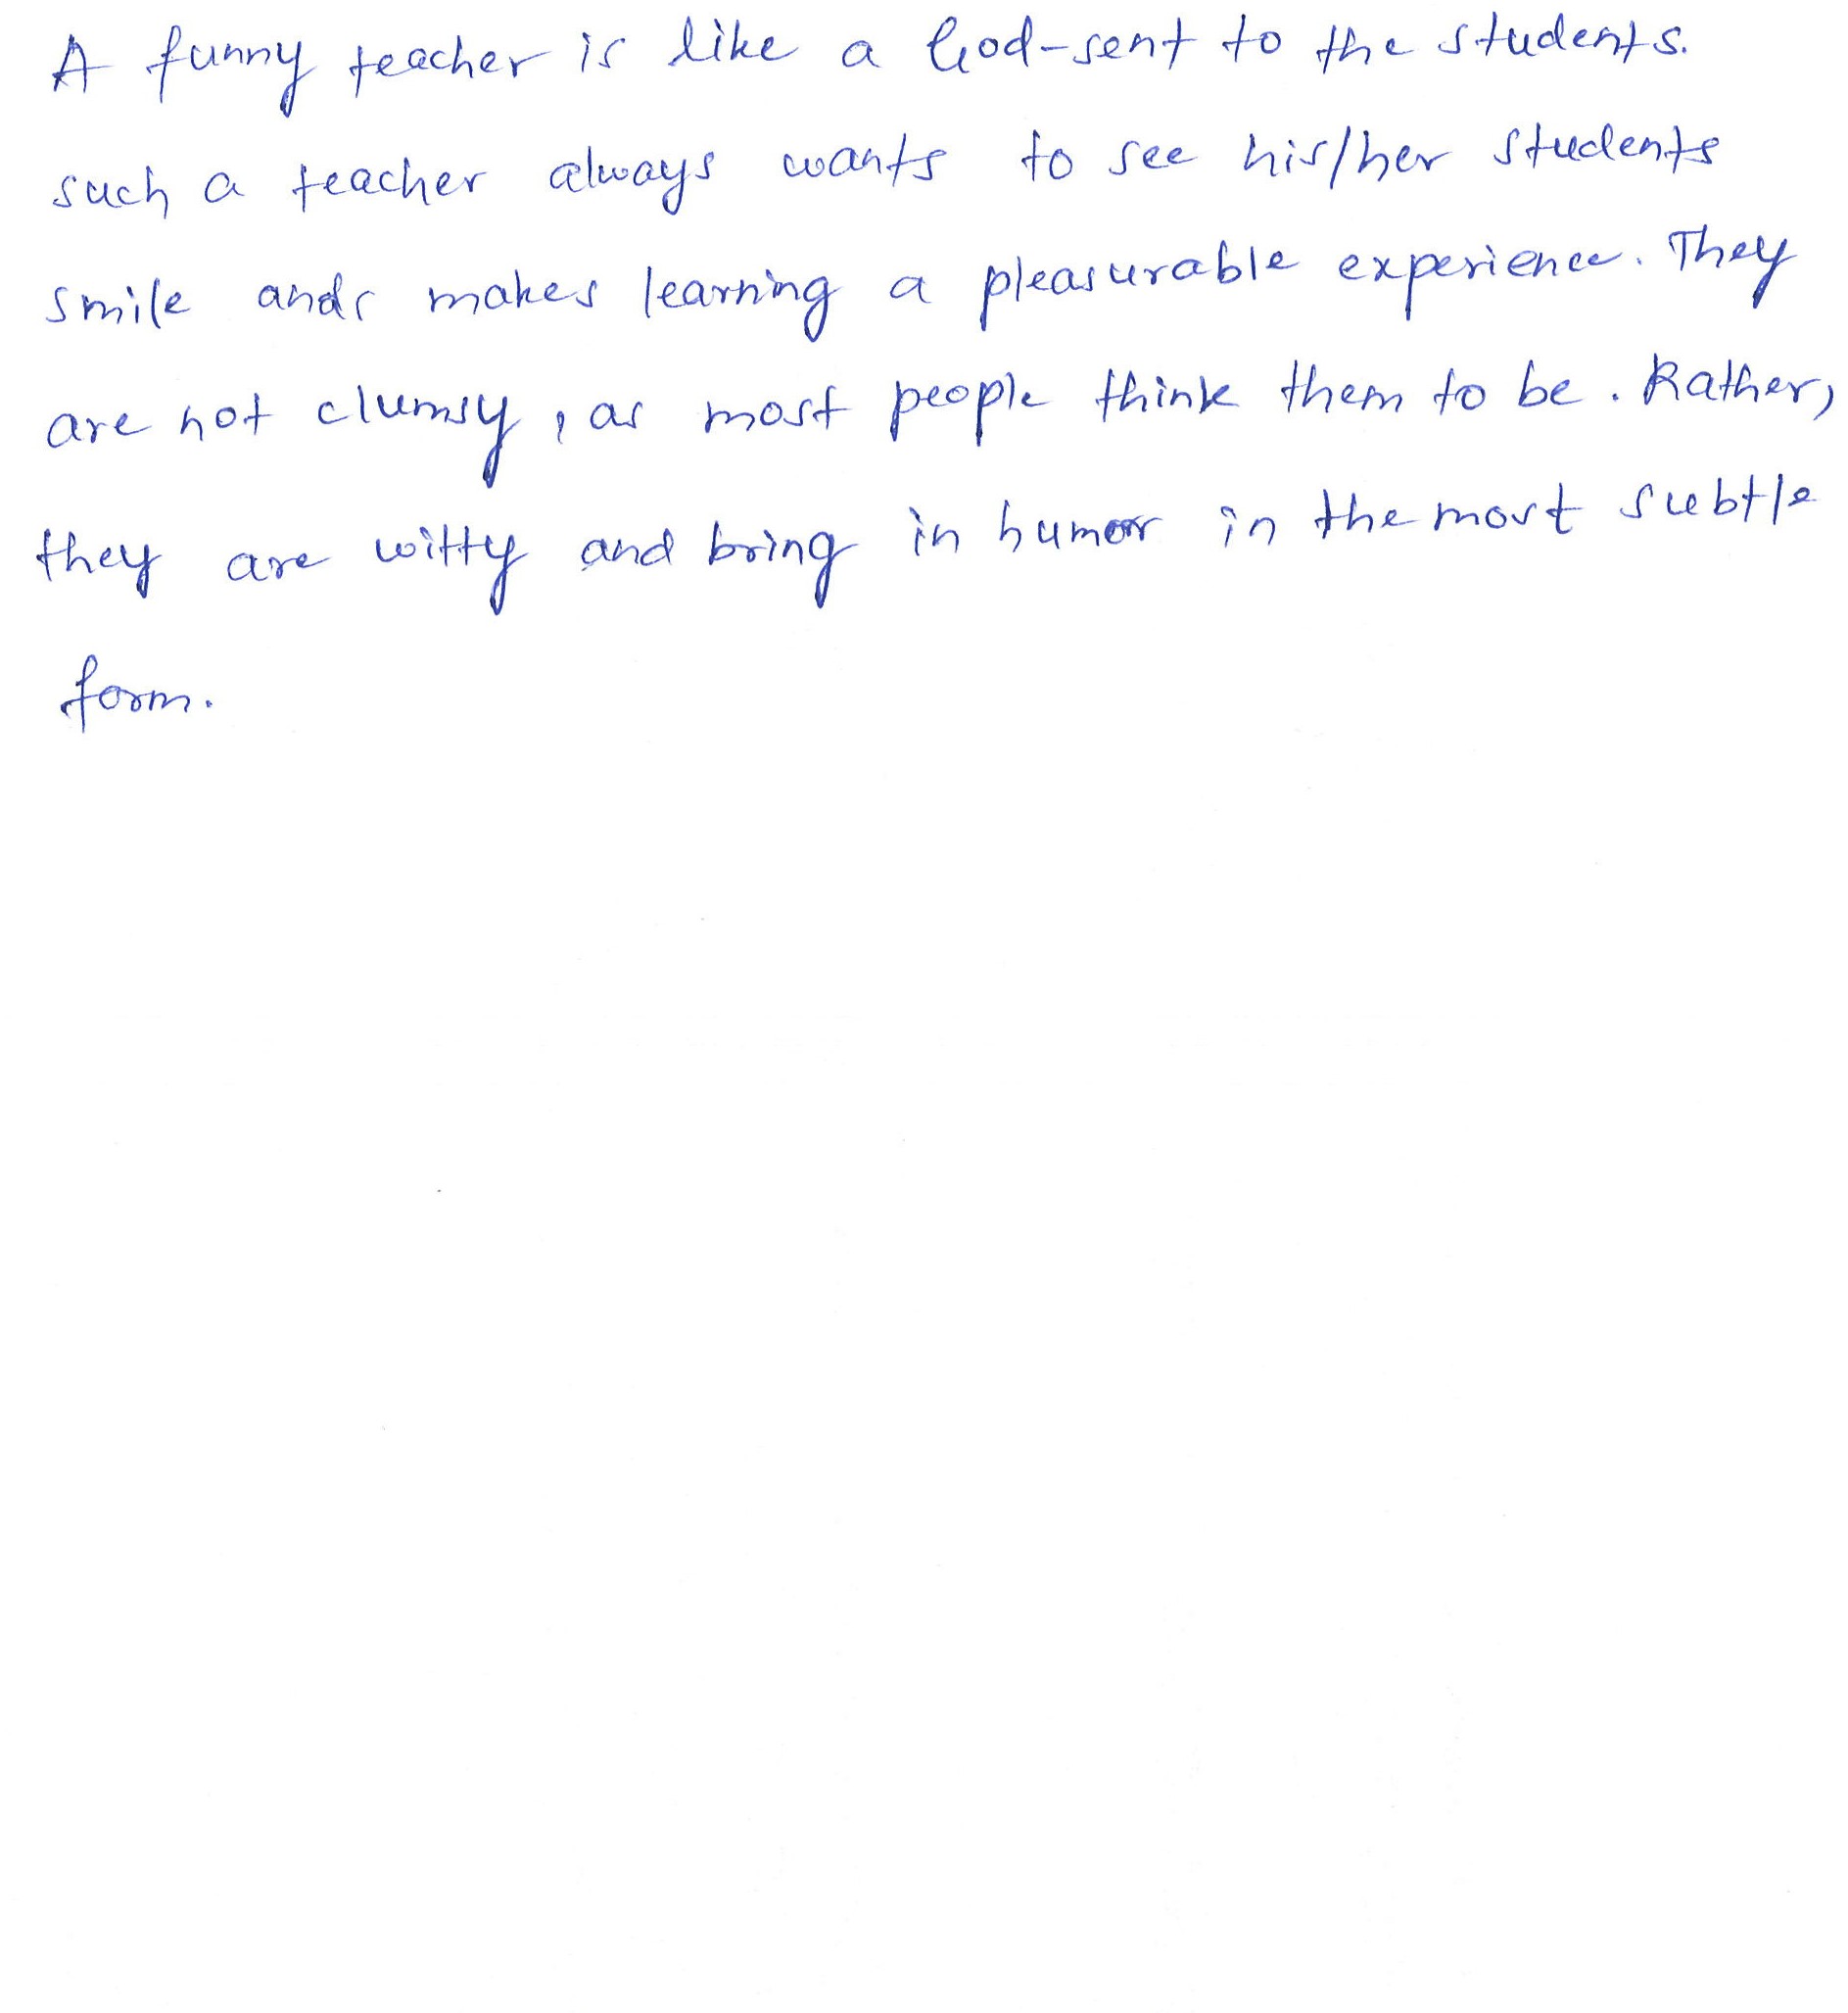 A funny teacher is like a God-sent to the students.
such a teacher always wants to see his/her students
smile ands makes learning a pleasurable experience. They
are not clumsy, as most people think them to be. Rather,
they are witty and bring in humor in the most subtle
form.